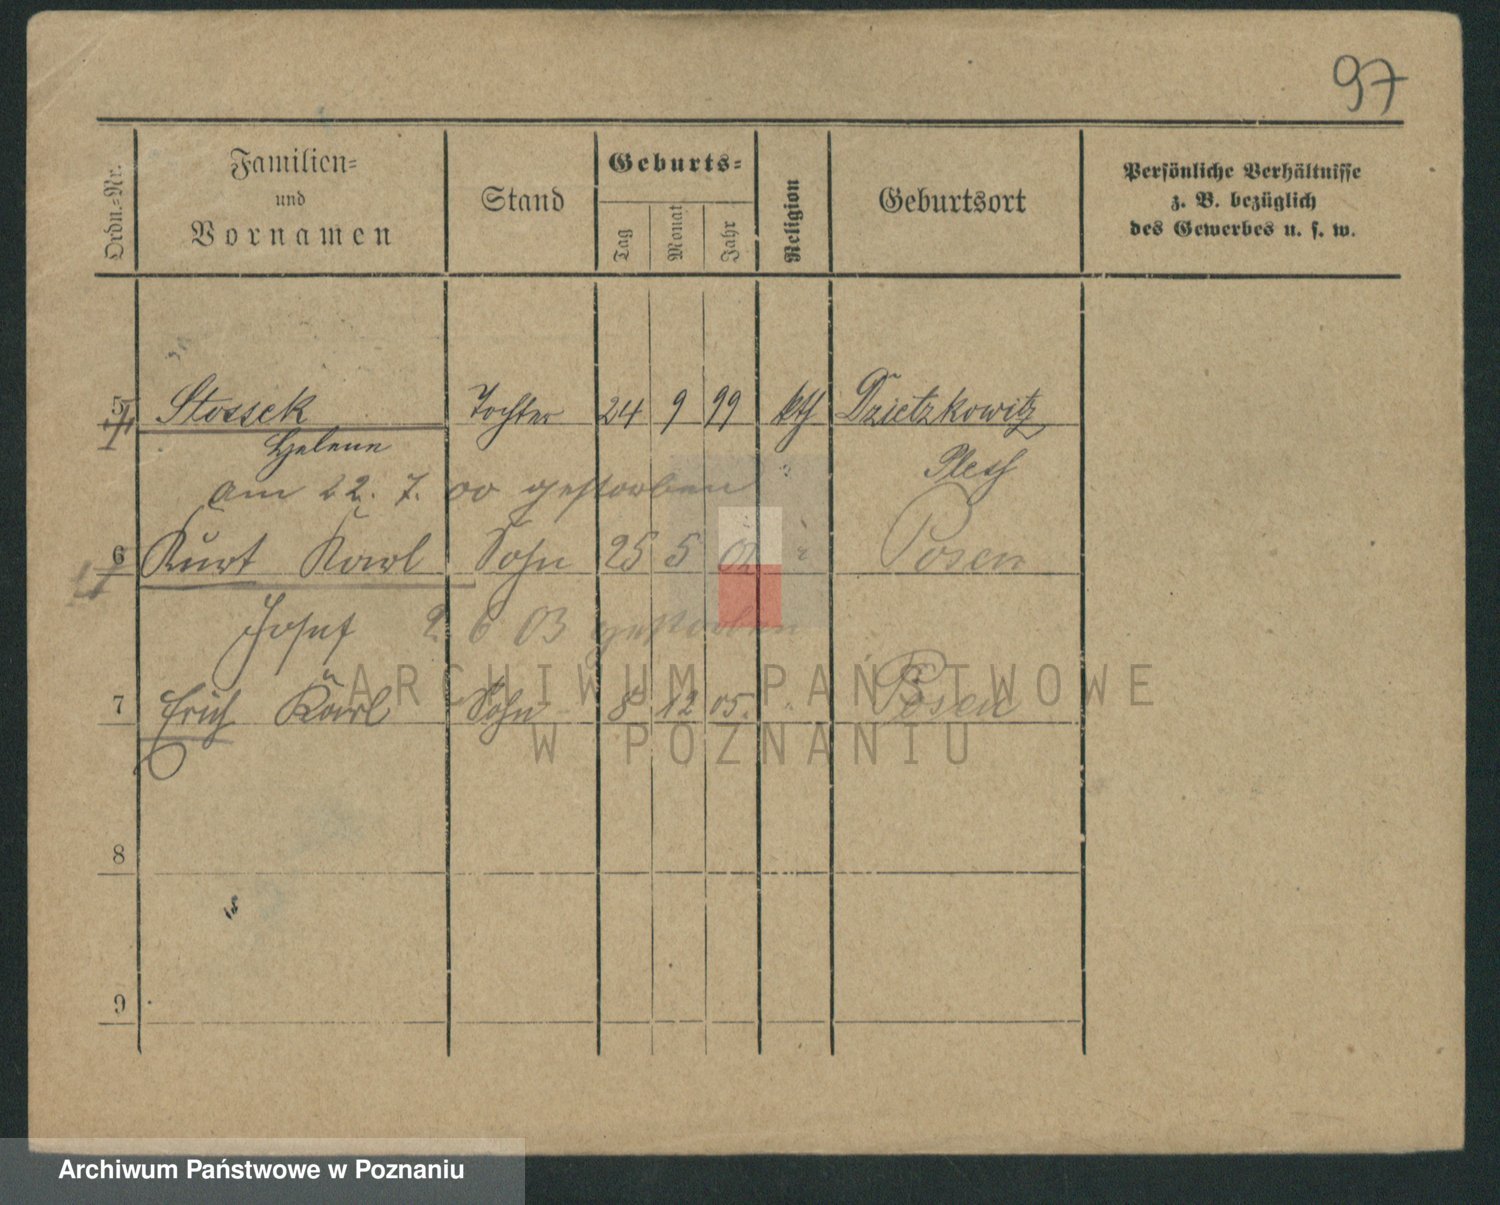 97
Ordn.=Nr.
Familien=
und
Vornamen
Stand
Geburts=
Tag
Monat
Jahr
Religion
Geburtsort
Persönliche Verhältnisse
z. B. bezüglich
des Gewerbes u. s. w.
5 Stossek Tochter 24 9 99 kth Dzietzkowitz
Helene Pless
am 22. 7. 00 gestorben
6 Kurt Karl Sohn 25 5 02 " Posen
Josef 2 6 03 gestorben
7 Erich Karl Sohn 8 12 05. " Posen
8
9
ARCHIWUM PAŃSTWOWE
W POZNANIU
Archiwum Państwowe w Poznaniu